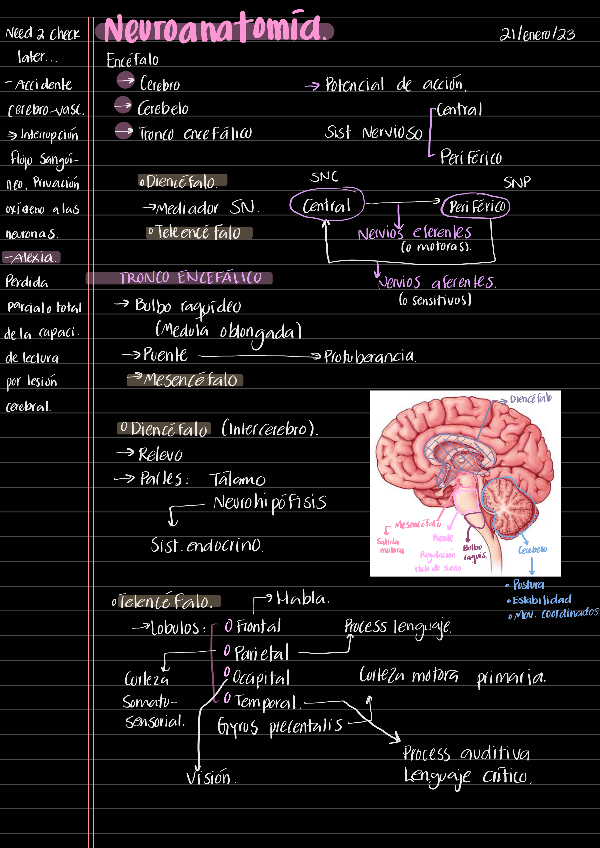 Neuroanatomía.
21/enero/23
Need 2 check
later...
- Accidente
cerebro-vasc.
→ Interrupción
flujo sangui-
neo, Privación
oxígeno a las
neuronas.
- Alexia.
Perdida
parcial o total
de la capaci.
de lectura
por lesión
cerebral.
Encéfalo
→ Cerebro
→ Cerebelo
→ Tronco encefálico
→ Potencial de acción.
Sist. Nervioso
Central
Periférico
Diencéfalo.
→ Mediador SN.
Telencéfalo
SNC
SNP
Central
Periférico
Nervios eferentes
(o motoras).
Nervios aferentes.
(o sensitivos)
TRONCO ENCEFÁLICO
→ Bulbo raquídeo
(Medula oblongada)
→ Puente → Protuberancia.
→ Mesencéfalo
Diencéfalo (Intercerebro).
→ Relevo
→ Partes: Tálamo
Neurohipófisis
Sist. endocrino.
Diencéfalo
Mesencéfalo
Salida
motora
Puente
Regulación
ciclo de sueño
Bulbo
raquis.
Cerebelo
• Postura
• Estabilidad
• Mov. coordinados
Telencéfalo.
→ Habla.
→ Lobulos:
Frontal
Process lenguaje.
Parietal
Corteza
Somato-
sensorial.
Occipital
Corteza motora primaria.
Temporal.
Gyrus precentalis
Process auditiva
Lenguaje crítico.
Visión.